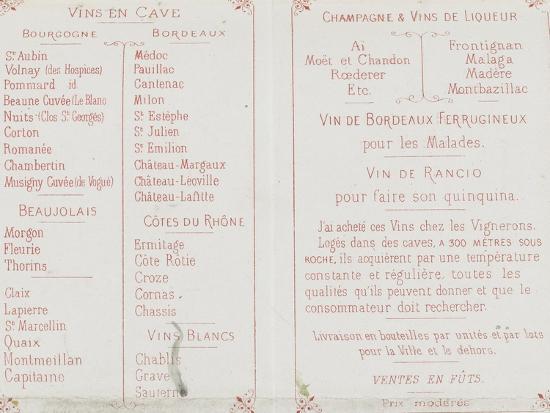 VINS EN CAVE
BOURGOGNE
St Aubin
Volnay (des Hospices)
Pommard id.
Beaune Cuvée (Le Blanc
Nuits (Clos St Georges)
Corton
Romanée
Chambertin
Musigny Cuvée (de Vogué)
BEAUJOLAIS
Morgon
Fleurie
Thorins
Claix
Lapierre
St Marcellin
Quaix
Montmeillan
Capitaine
BORDEAUX
Médoc
Pauillac
Cantenac
Milon
St Estèphe
St Julien
St Emilion
Château-Margaux
Château-Léoville
Château-Lafitte
CÔTES DU RHÔNE
Ermitage
Côte Rôtie
Croze
Cornas
Chassis
VINS BLANCS
Chablis
Grave
Sauterne
CHAMPAGNE & VINS DE LIQUEUR
Aï
Moët et Chandon
Rœderer
Etc.
Frontignan
Malaga
Madère
Montbazillac
VIN DE BORDEAUX FERRUGINEUX
pour les Malades.
VIN DE RANCIO
pour faire son quinquina.
J'ai acheté ces Vins chez les Vignerons.
Logés dans des caves, A 300 MÈTRES SOUS
ROCHE, ils acquièrent par une température
constante et régulière, toutes les
qualités qu'ils peuvent donner et que le
consommateur doit rechercher.
Livraison en bouteilles par unités et par lots
pour la Ville et le dehors.
VENTES EN FÛTS.
Prix modérés.